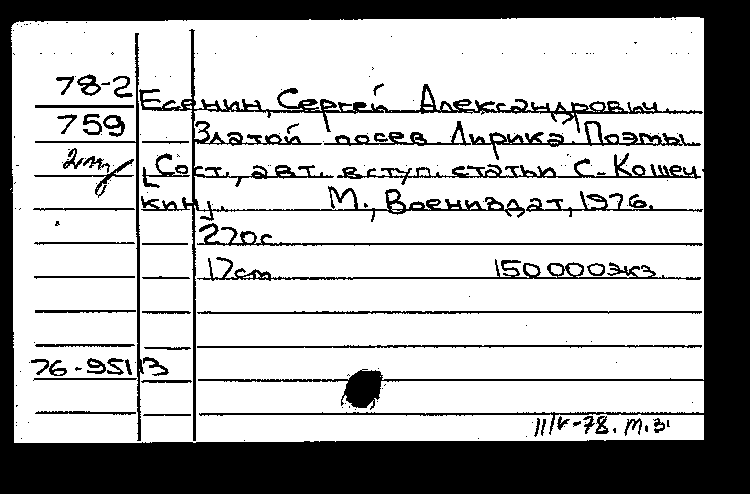 78-2 Есенин, Сергей Александрович.
759 Златой посев. Лирика. Поэмы.
[Сост., авт. вступ. статьи С. Кошеч-
кин]. М., Воениздат, 1976.
270с
17cm 150 000экз.
76-95113